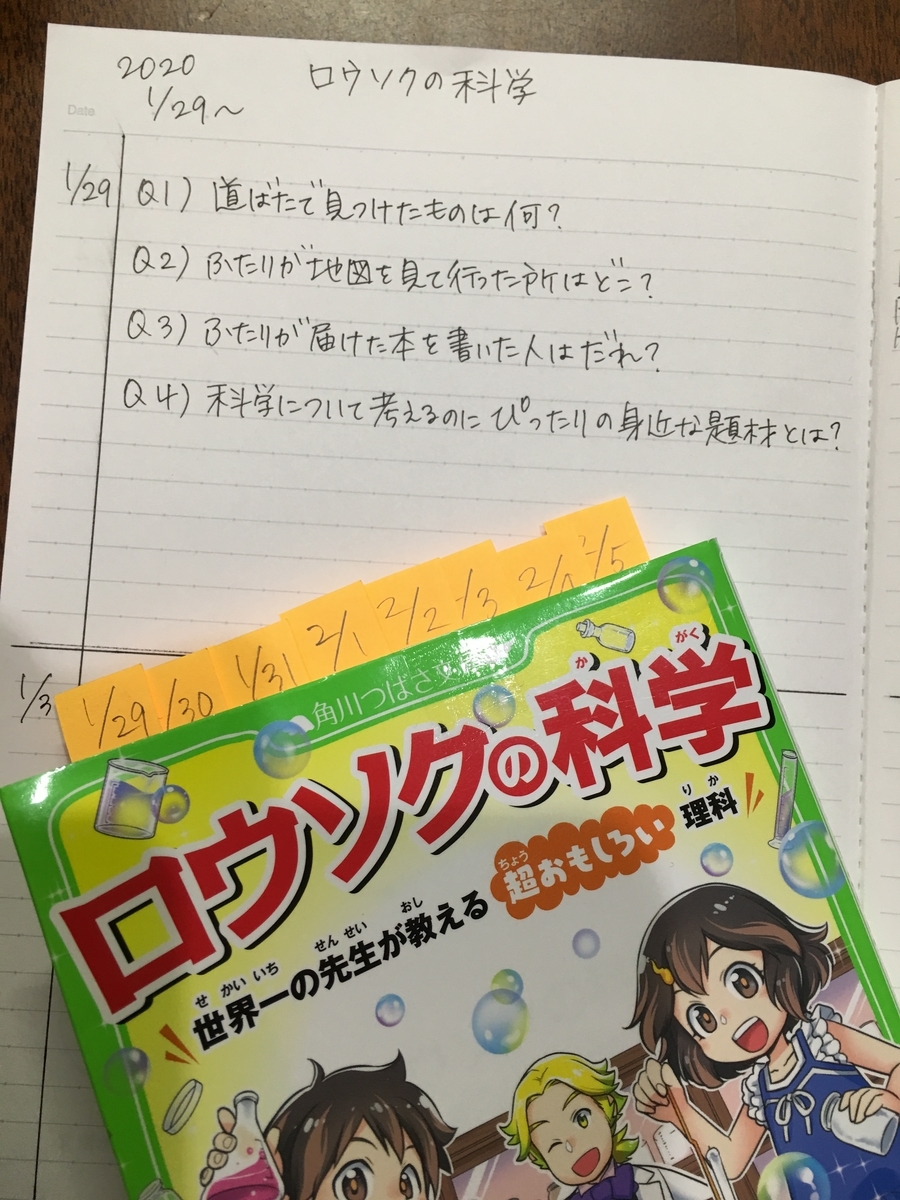 2020
ロウソクの科学
1/29〜
Date
1/29
Q1) 道ばたで見つけたものは何?
Q2) ふたりが地図を見て行った所はどこ?
Q3) ふたりが届けた本を書いた人はだれ?
Q4) 科学について考えるのにぴったりの身近な題材とは?
1/3
1/29
1/30
1/31
2/1
2/2
2/5
角川つばさ文
かがく
ロウソクの科学
せかいいち せんせい おし ちょう りか
世界一の先生が教える 超おもしろい 理科